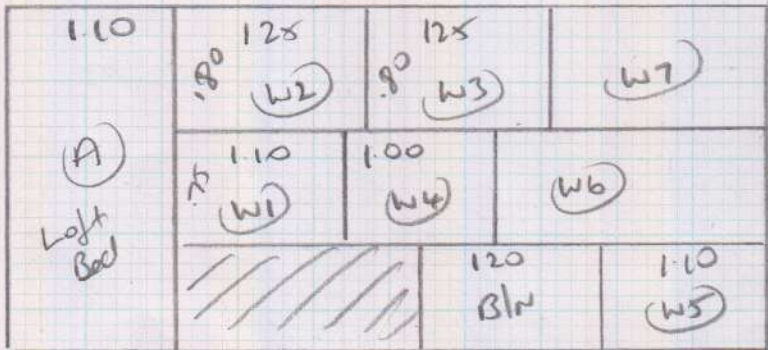 1.10
A
Loft
Bed
125
.80
W2
125
.80
W3
W7
1.10
W1
1.00
W4
W6
120
B/N
1.10
W5